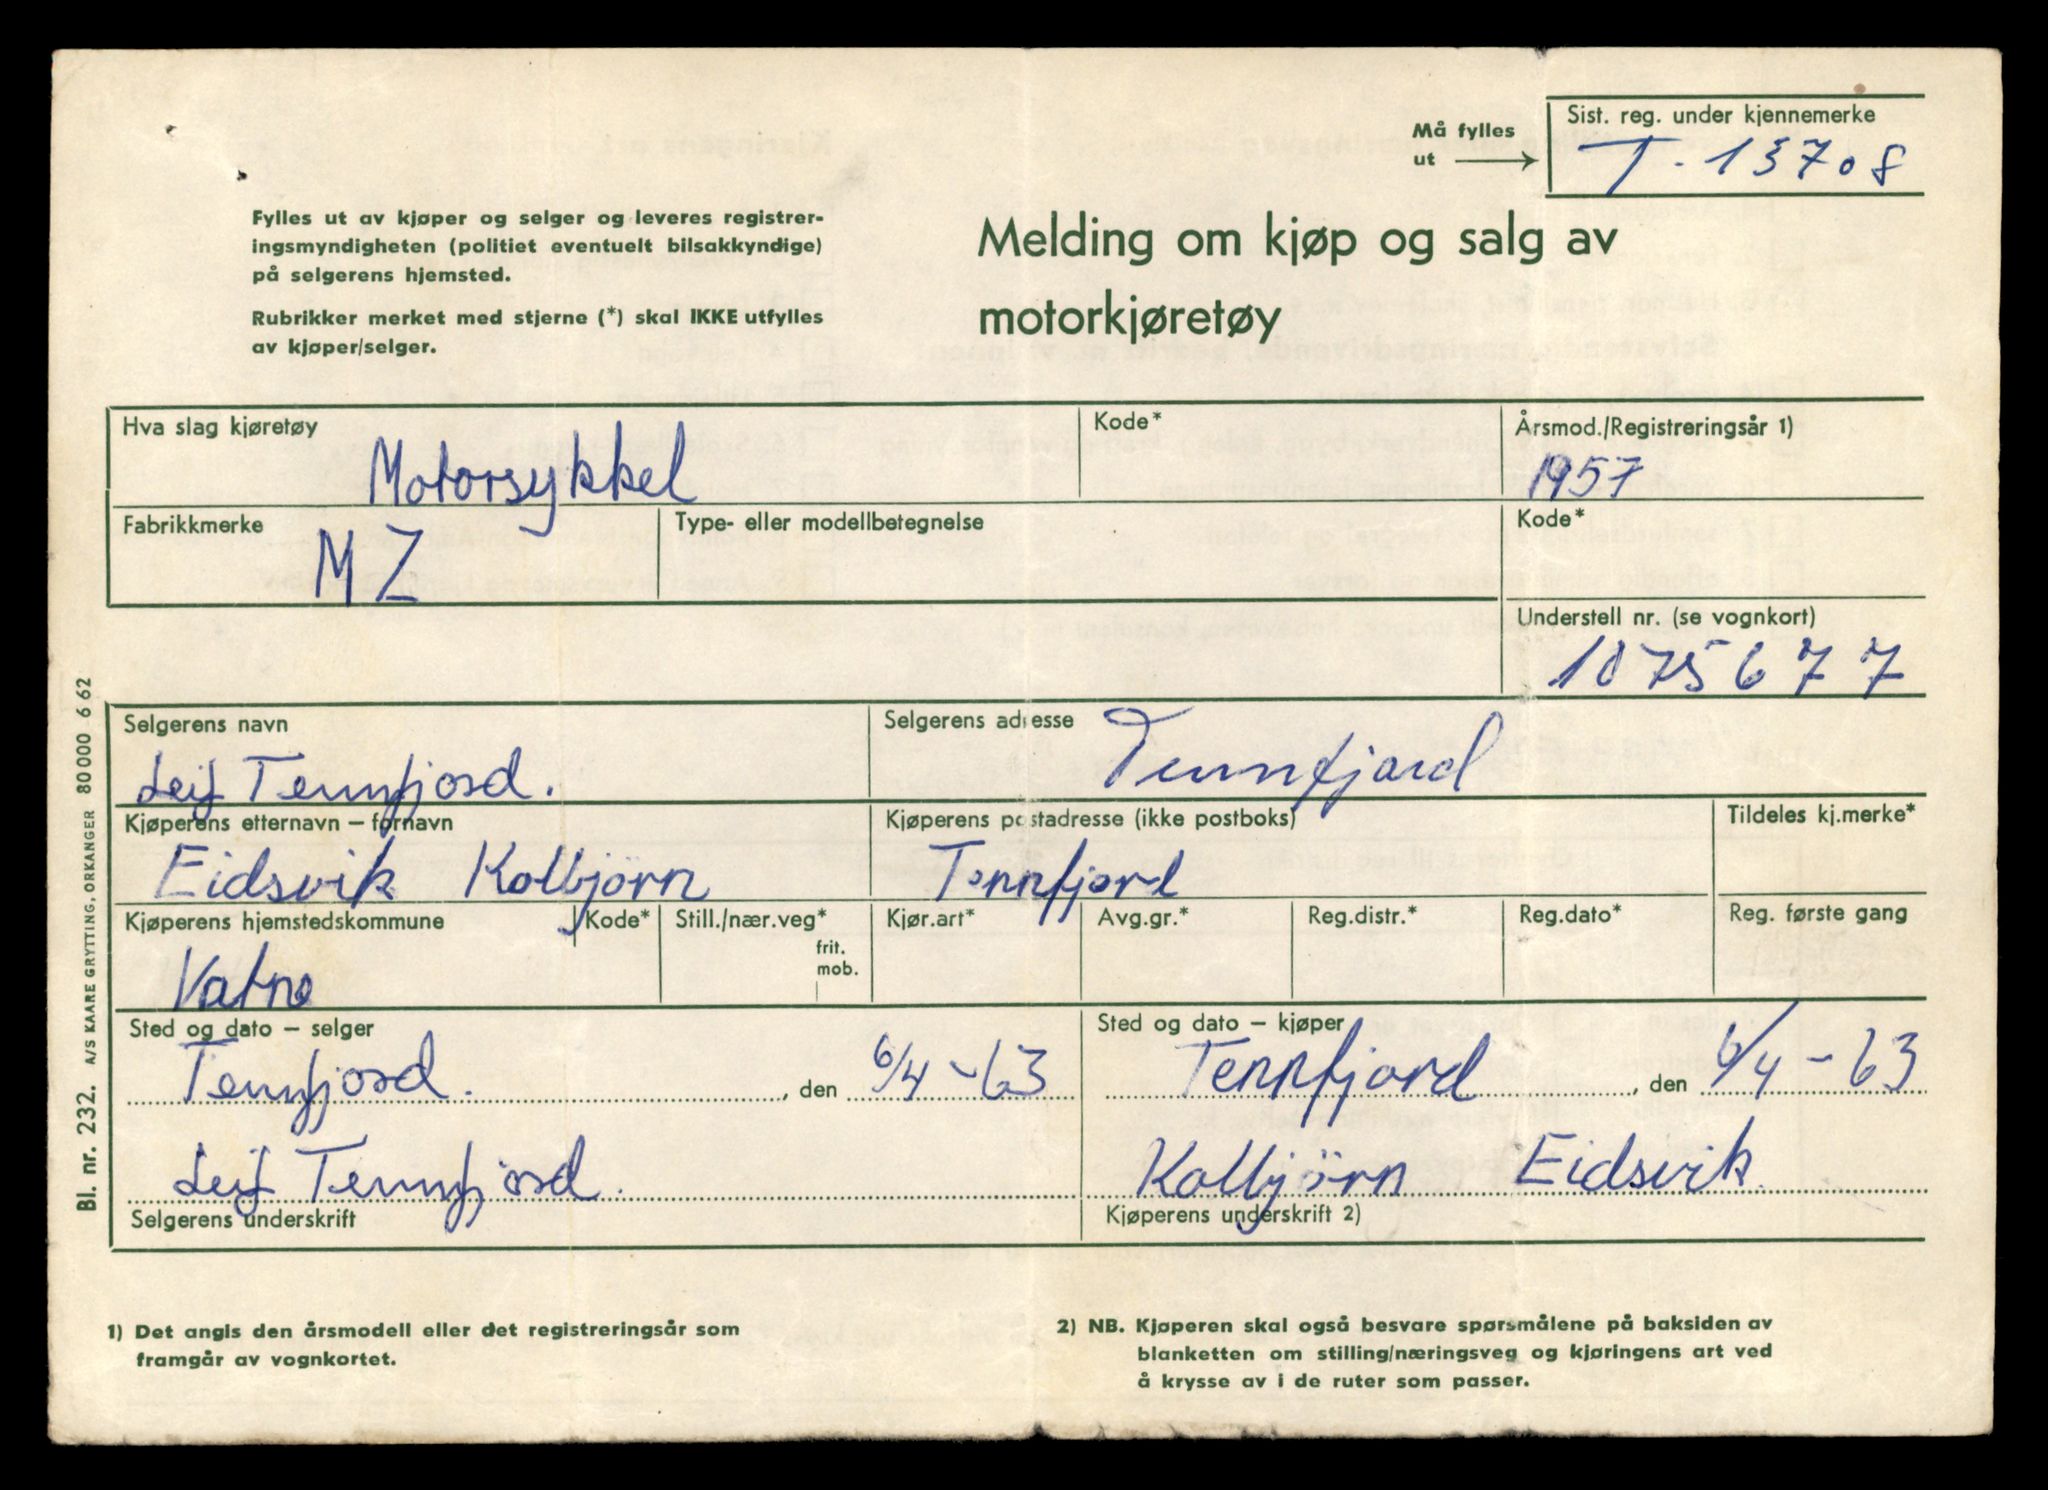 Må fylles
ut
Sist. reg. under kjennemerke
T-13708
Fylles ut av kjøper og selger og leveres registrer-
ingsmyndigheten (politiet eventuelt bilsakkyndige)
på selgerens hjemsted.
Rubrikker merket med stjerne (*) skal IKKE utfylles
av kjøper/selger.
Melding om kjøp og salg av
motorkjøretøy
Hva slag kjøretøy
Motorsykkel
Kode*
Årsmod./Registreringsår 1)
1957
Fabrikkmerke
MZ
Type- eller modellbetegnelse
Kode*
Understell nr. (se vognkort)
1075677
Selgerens navn
Leif Tennfjord.
Selgerens adresse
Tennfjord
Kjøperens etternavn – fornavn
Eidsvik Kolbjörn
Kjøperens postadresse (ikke postboks)
Tennfjord
Tildeles kj.merke*
Kjøperens hjemstedskommune
Vatne
Kode*
Still./nær.veg*
frit.
mob.
Kjør.art*
Avg.gr.*
Reg.distr.*
Reg.dato*
Reg. første gang
Sted og dato – selger
Tennfjord. , den 6/4-63
Leif Tennfjord.
Selgerens underskrift
Sted og dato – kjøper
Tennfjord , den 6/4-63
Kolbjörn Eidsvik
Kjøperens underskrift 2)
1) Det angis den årsmodell eller det registreringsår som
framgår av vognkortet.
2) NB. Kjøperen skal også besvare spørsmålene på baksiden av
blanketten om stilling/næringsveg og kjøringens art ved
å krysse av i de ruter som passer.
Bl. nr. 232. A/S KAARE GRYTTING, ORKANGER 80000 6 62